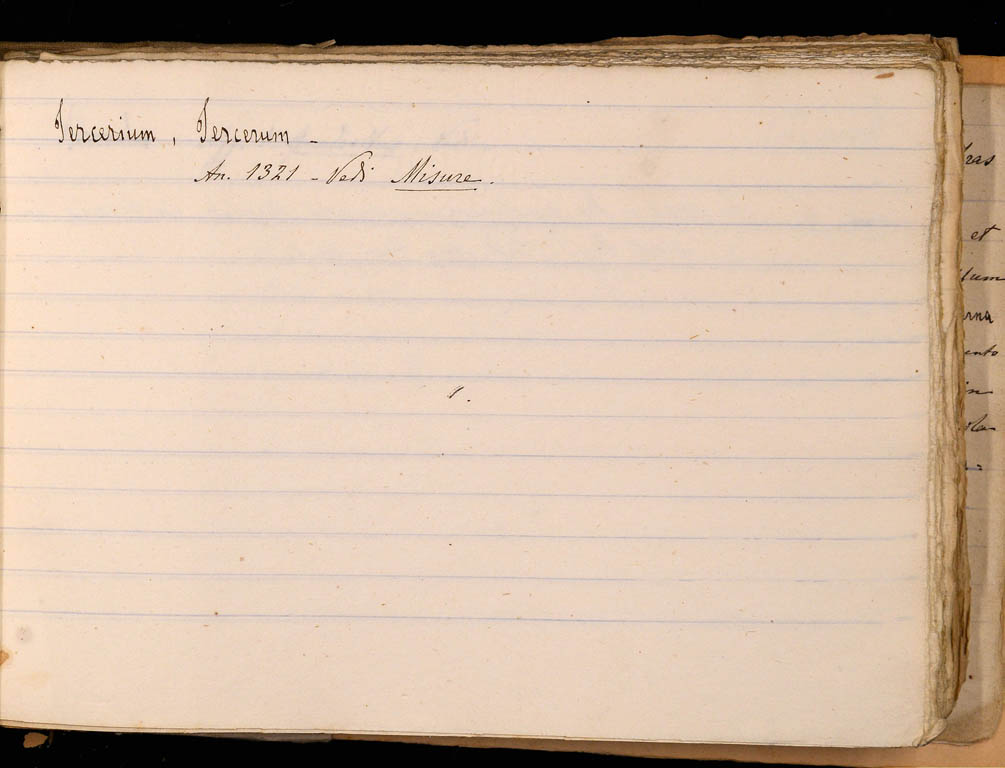 Tercerium, Tercerum -
An. 1321 - Vedi Misure.
ras
et
rna
ento
in